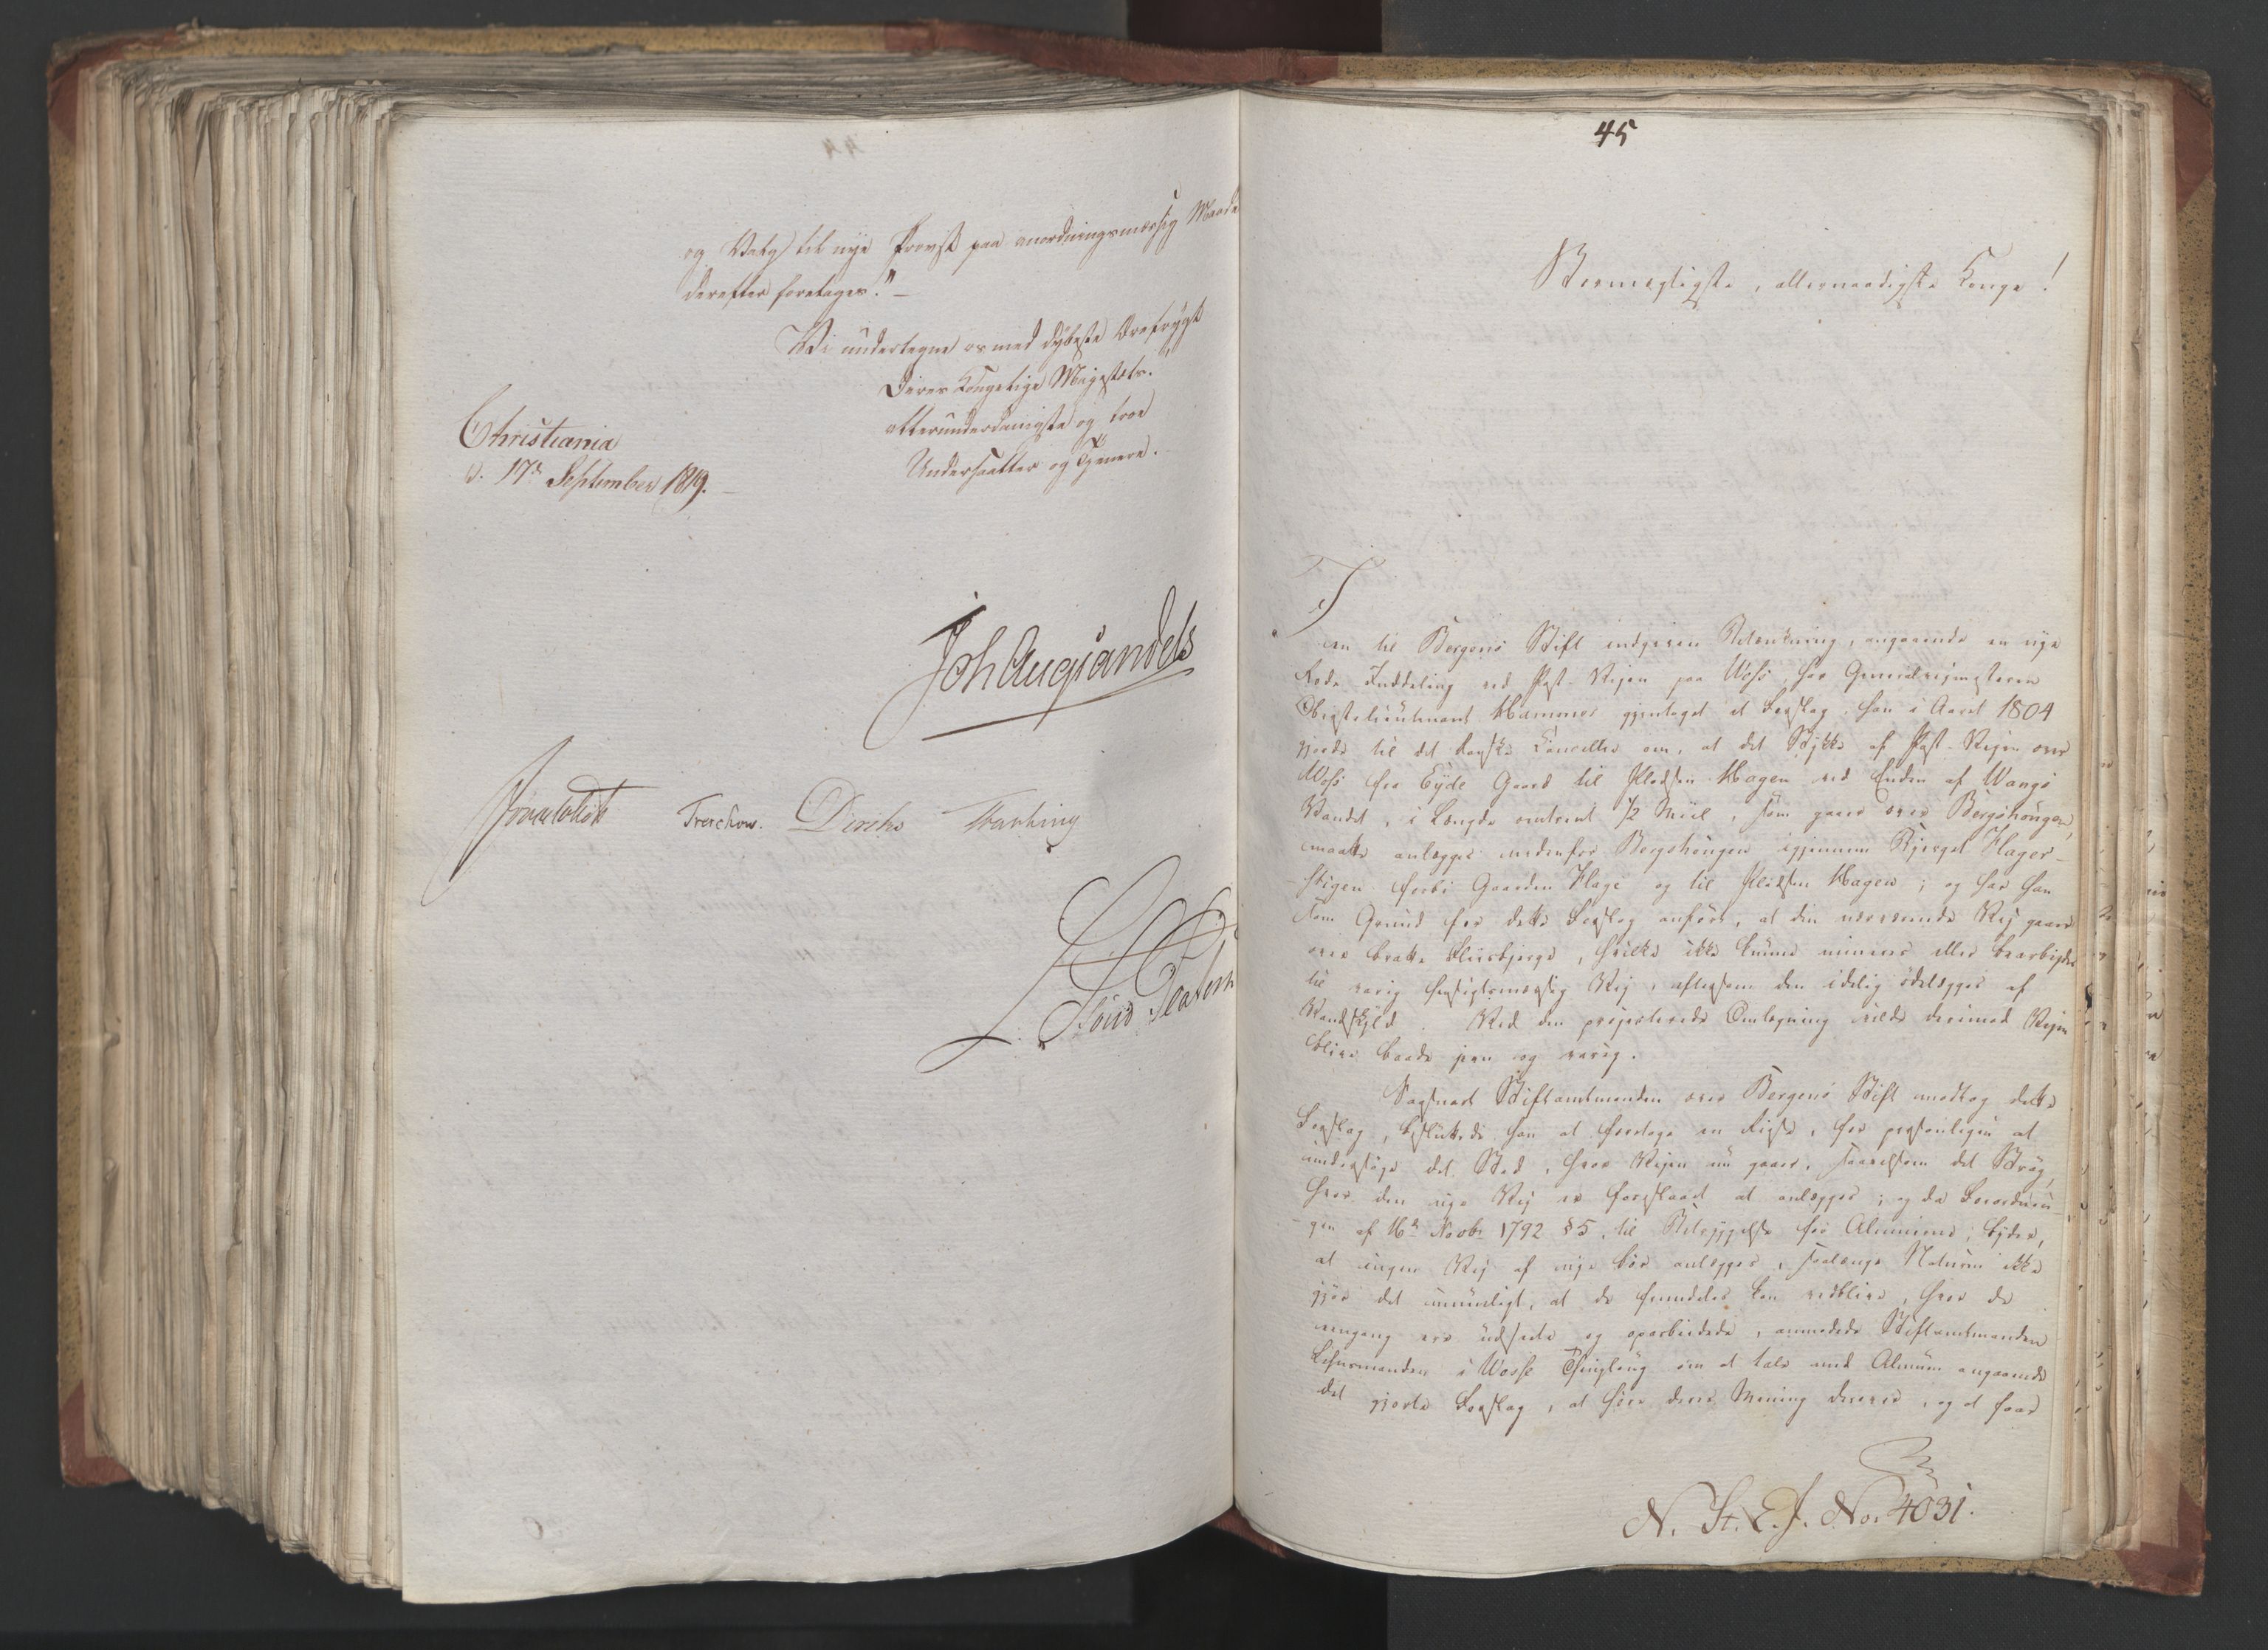 og Valg til nye Provst paa anordningsmæssig Maade
derefter foretages." –
Vi undertegne os med dybeste Ærefrygt
Deres Kongelige Majestæts.
allerunderdanigste og troe
Undersaatter og Tjenere.
Christiania
d. 17de September 1819. –
Joh Aug Sandels
Treschow. Diriks
45
Stormægtigste, allernaadigste Konge!
I
en til Bergens Stift indgiven Betænkning, angaaende en nye
Rode Inddeling ved Post-Vejen paa Woss, har Generalvejmesteren
Obristelieutnant Hammer gjentaget et Forslag han i Aaret 1804
gjorde til det danske Cancellie om, at det Stykke af Post-Vejen over
Woss fra Eyde Gaard til Pladsen Hagen ved Enden af Wangs
Vandet, i Længde omtrent 1/2 Miil, som gaaer over Bergshougen,
maatte anlægges nedenfor Bergshougen igjennem Bjerget Flager-
-stigen forbi Gaarden Flage og til Pladsen Hagen; og har han
som Grund for dette Forslag anført, at den nærværende Vej gaaer
over bratte Fliisbjerge, hvilke ikke kunne mineres eller bearbejdes
til varig hensigtsmæssig Vej, eftersom den idelig ødelægges af
Vandskyld. Ved den projecterede Omlegning vilde derimod Vejen
blive baade jevn og varig.
Saasnart Stiftamtmanden over Bergens Stift modtog dette
Forslag, besluttede han at foretage en Rejse, for personligen at
undersøge det Sted, hvor Vejen nu gaaer, saavelsom det Strøg,
hvor den nye Vej er foreslaaet at anlægges; og da Forordnin-
-gen af 16de Novbr 1792 § 5, til Betryggelse for Almuerne, byder,
at ingen Vej af nye bør anlægges, saalænge Naturen ikke
gjør det umueligt, at de fremdeles kan vedblive, hvor de
eengang ere udseete og oparbeidede, anmodede Stiftamtmanden
Lehnsmanden i Wosse Thinglaug om at tale med Almuen angaaende
det gjorte Forslag, at høre deres Mening derover, og at faae
N. St. E. J. No. 4031.